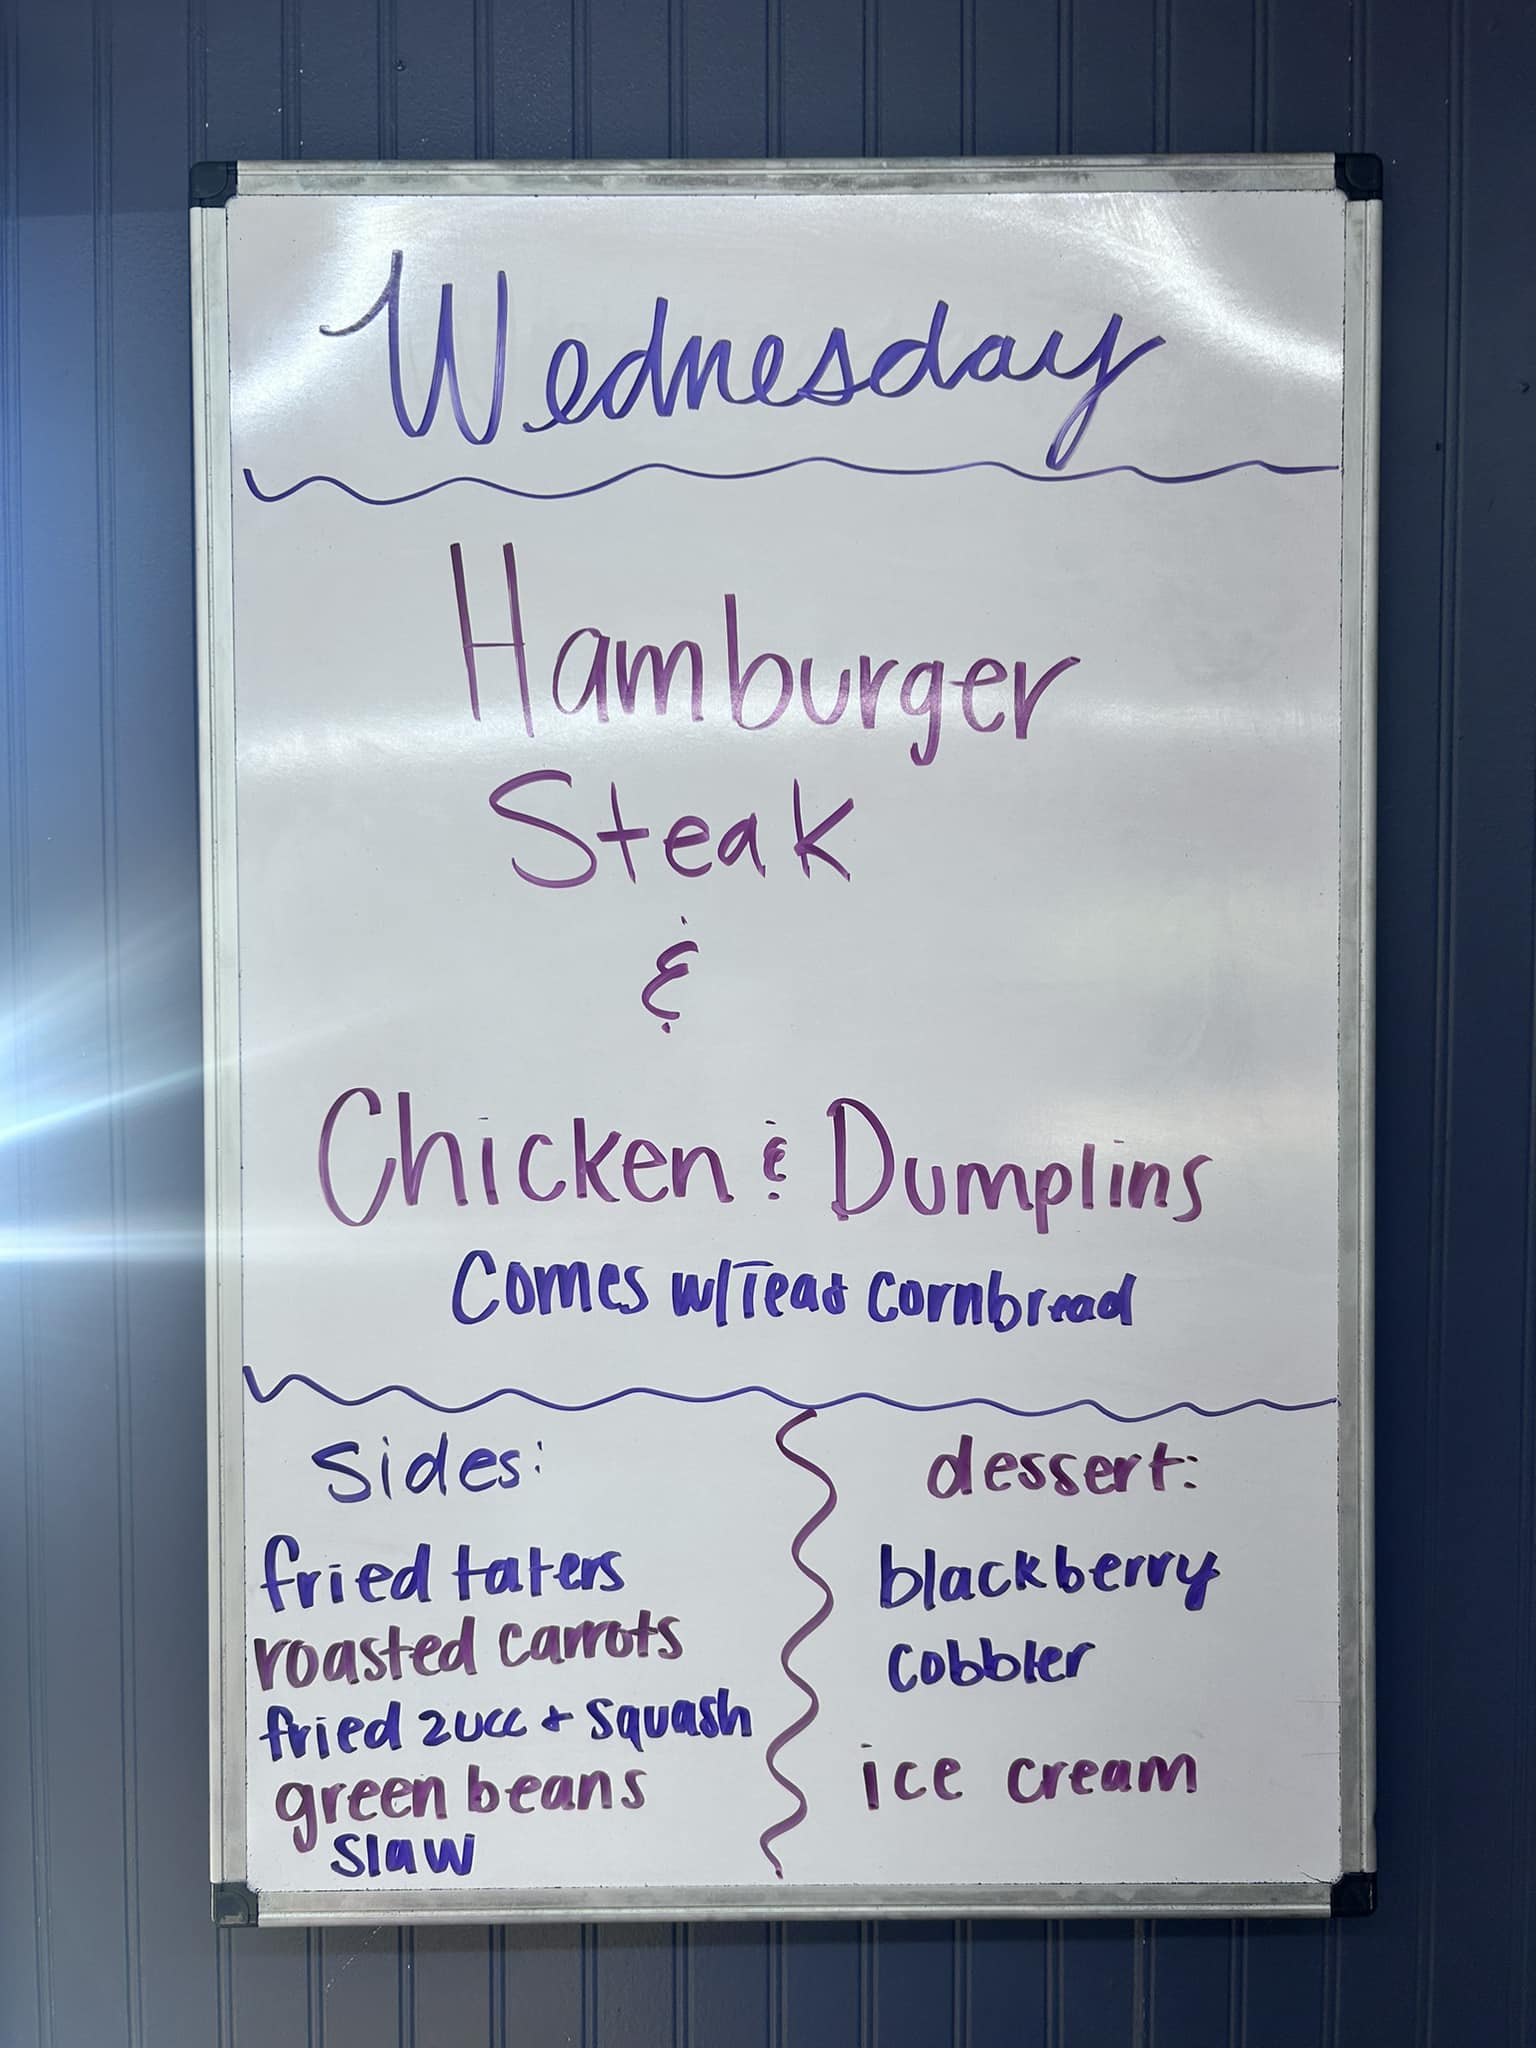 Wednesday
Hamburger
Steak
&
Chicken & Dumplins
Comes w/Tea & cornbread
sides:
fried taters
roasted carrots
fried zucc + squash
green beans
slaw
dessert:
blackberry
cobbler
ice cream